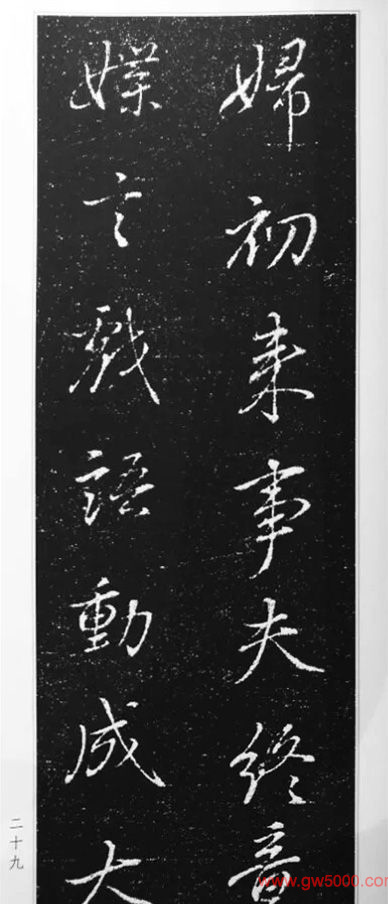 婦初来事夫終音
媟言戲語動成大
二十九
www.gw5000.com